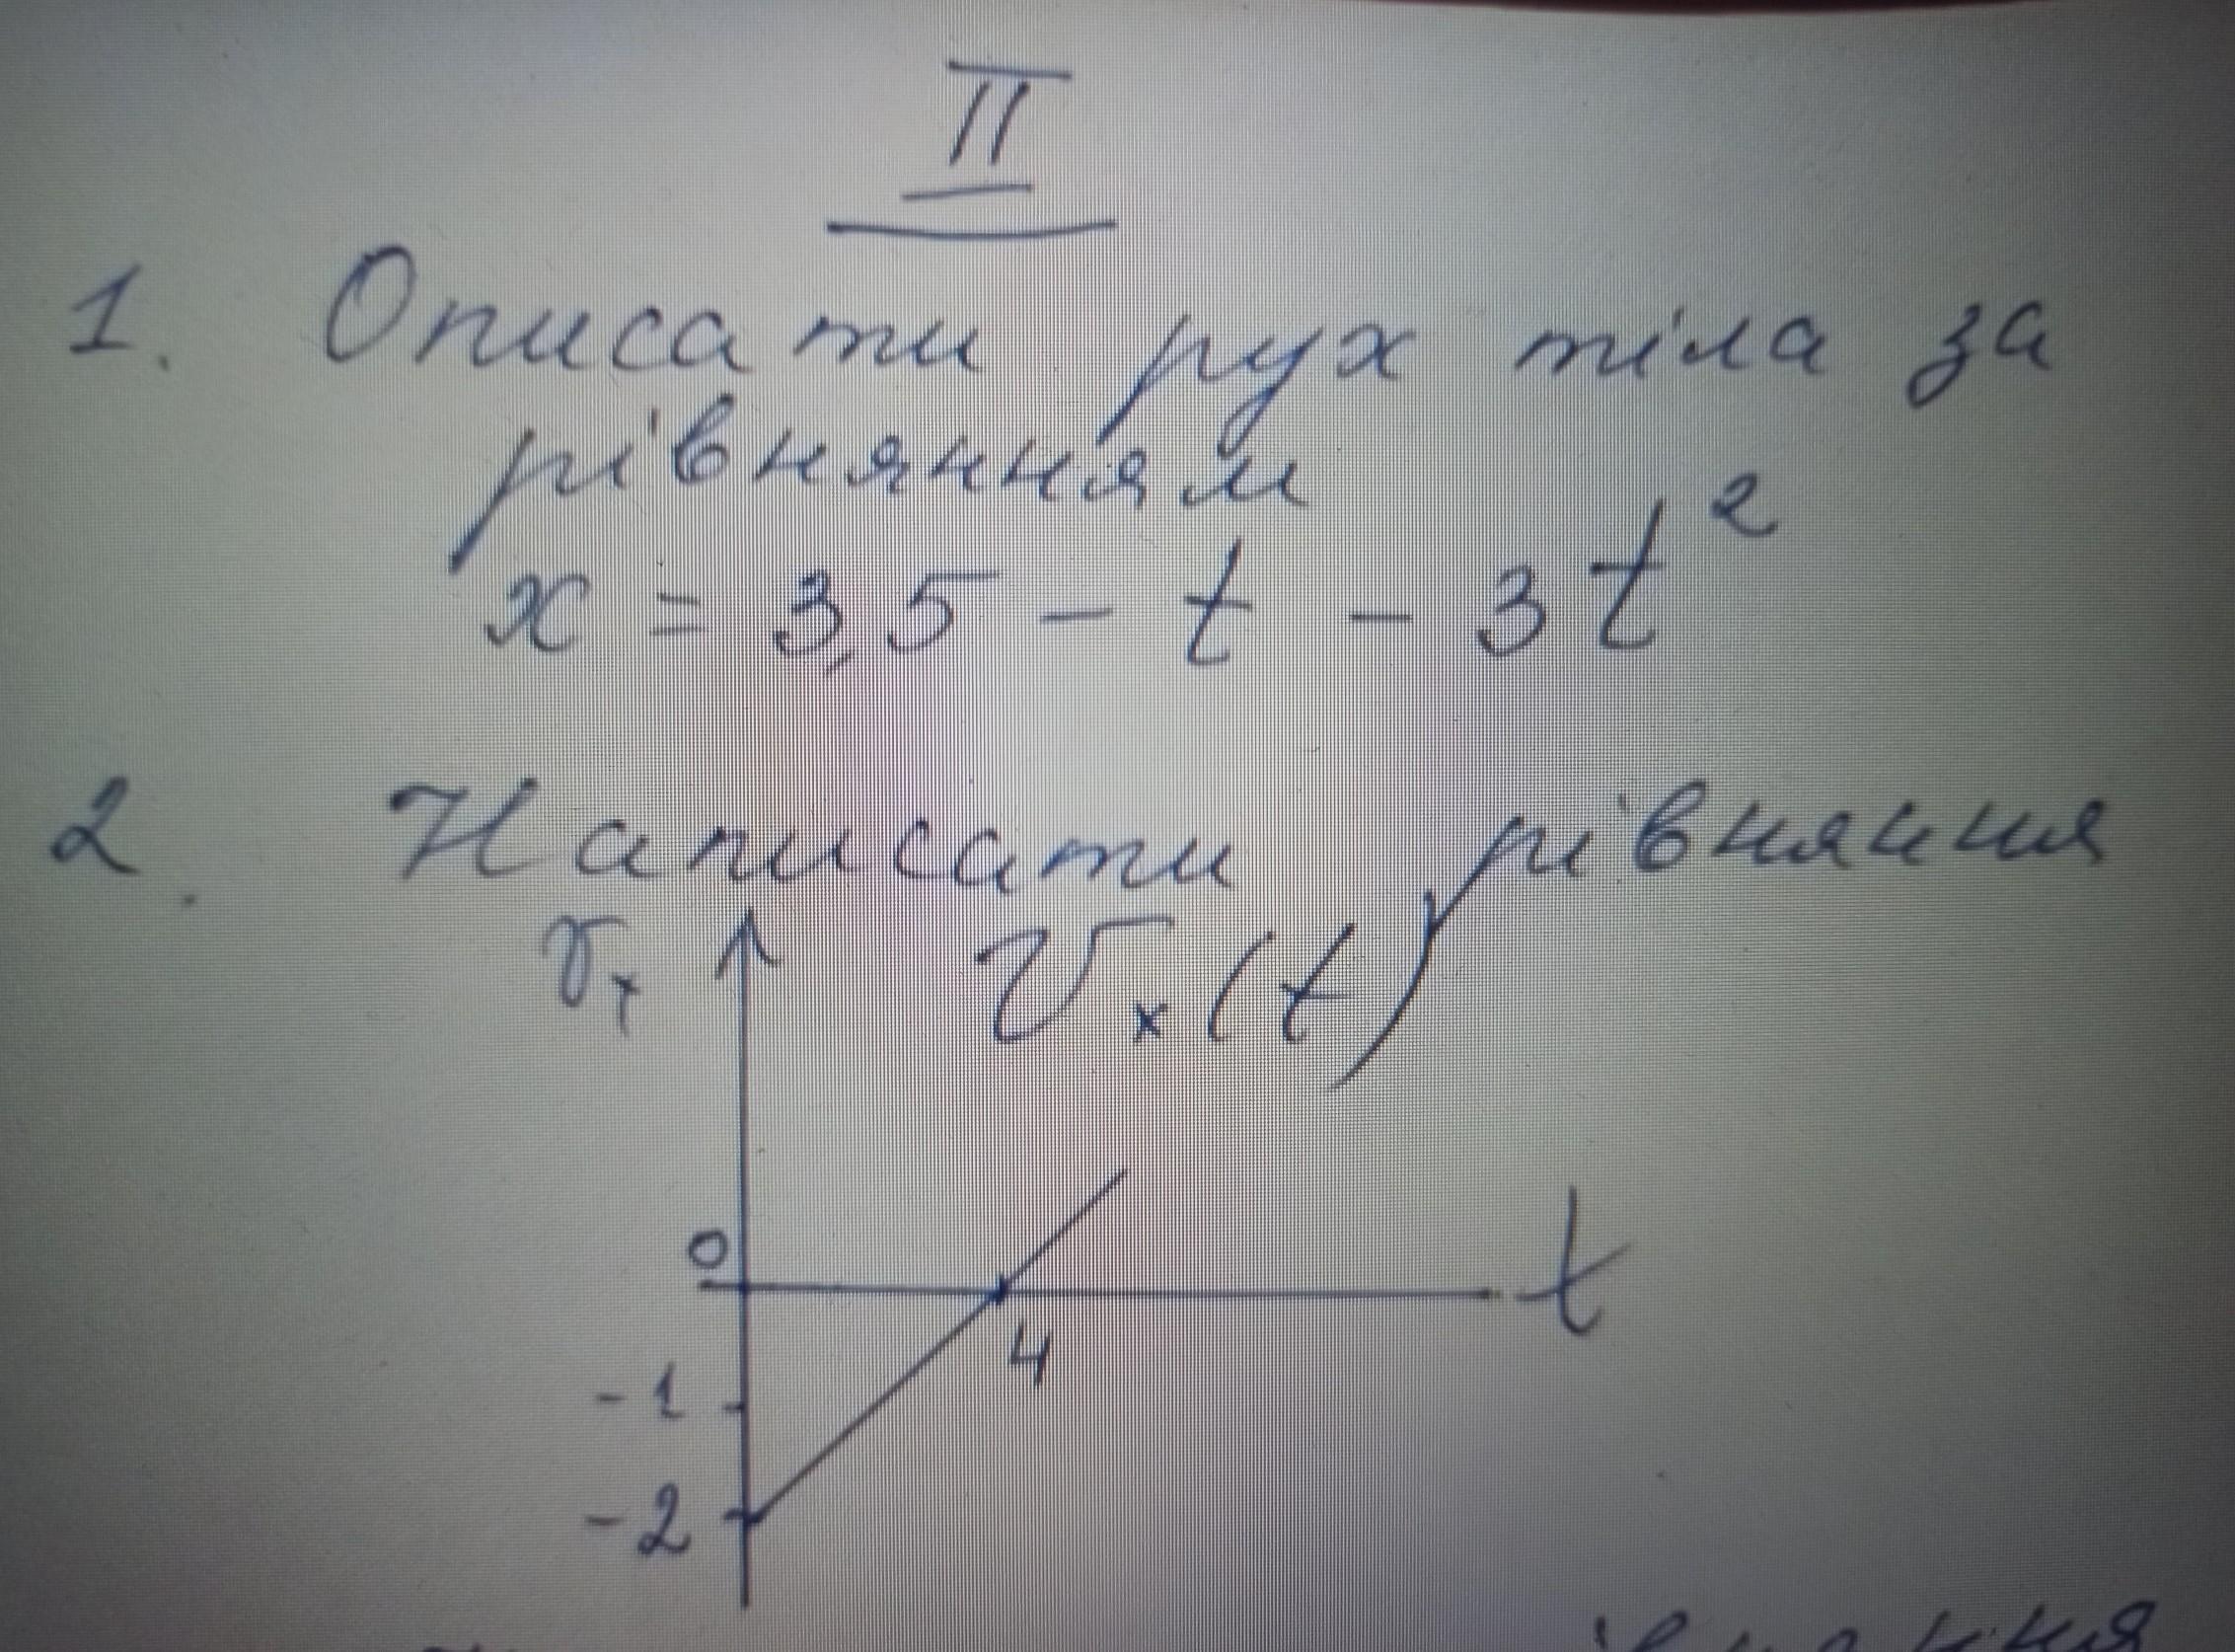 II
1. Описати рух тіла за
рівнянням
x = 3,5 - t - 3t²
2. Написати рівняння
υₓ υₓ(t)
0
t
4
-1
-2